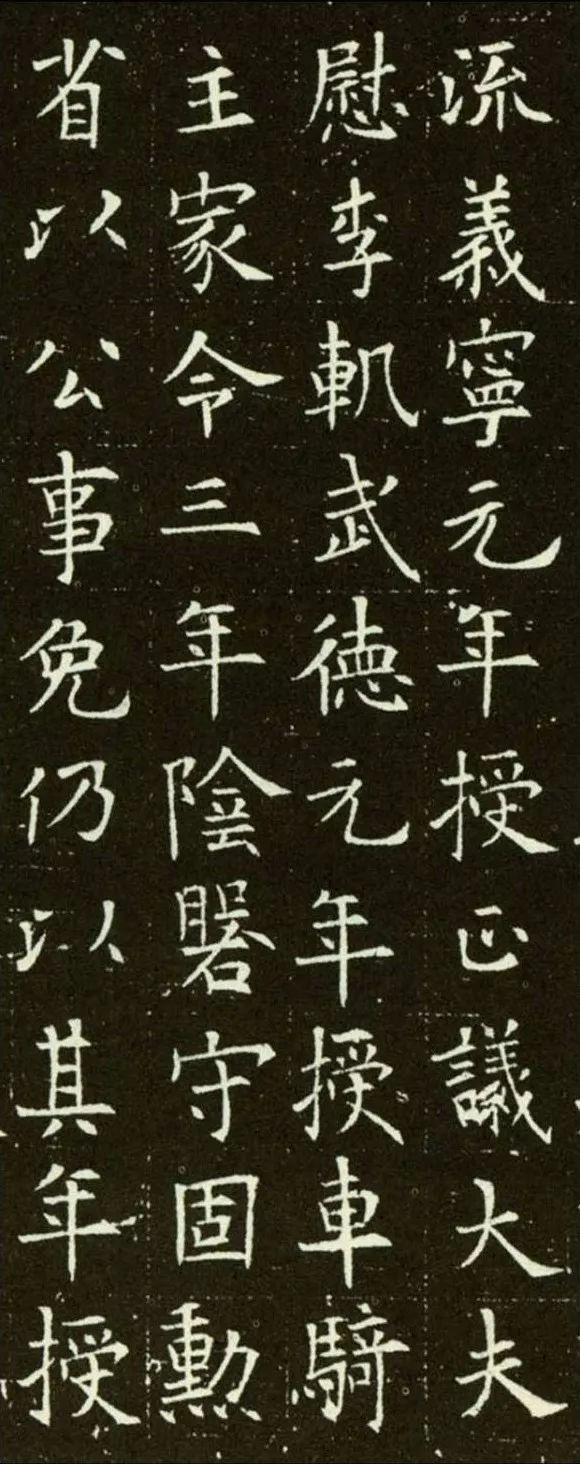 流義寧元年授正議大夫
慰李軌武徳元年授車騎
主家令三年陰磐守固勲
省以公事免仍以其年授